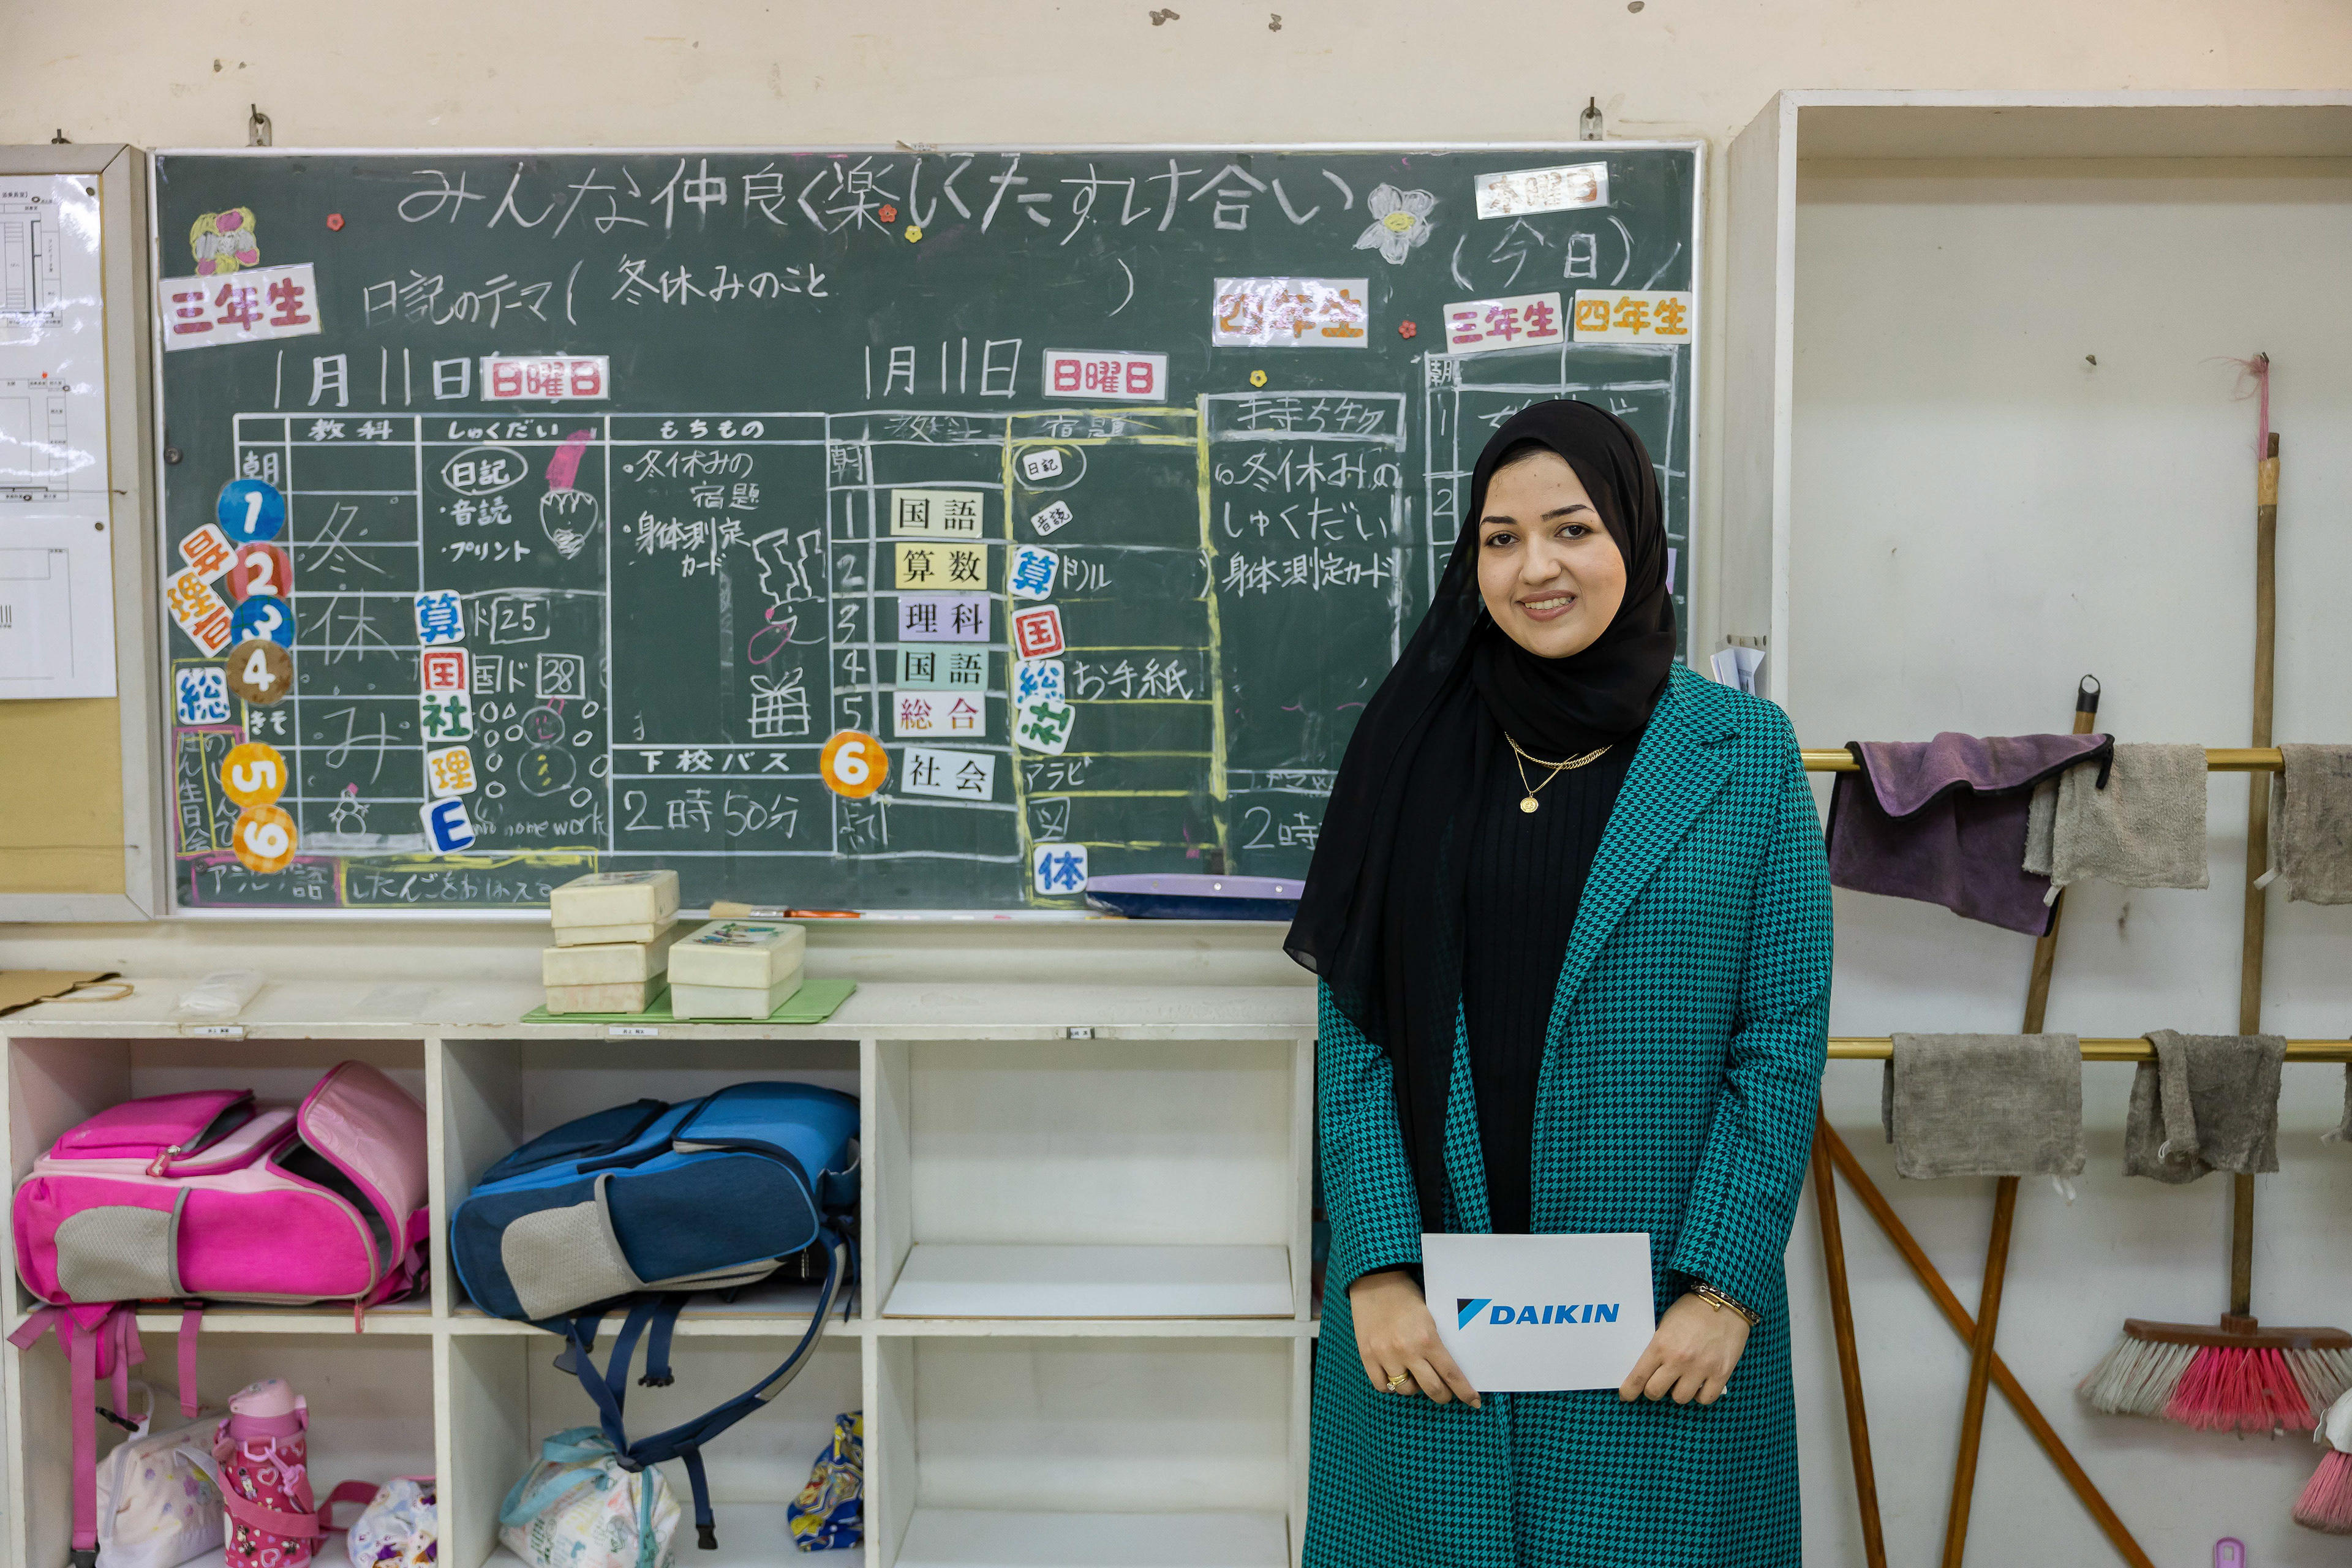 みんな仲良く楽しくたすけ合い
木曜日
(今日)
三年生
日記のテーマ( 冬休みのこと )
四年生
三年生 四年生
1月11日 日曜日
1月11日 日曜日
教科 しゅくだい もちもの
朝
1
2
3
4
きそ
5
6
冬
休
み
音
理
音
総
日記
・音読
・プリント
算 ド 25
国 国ド 38
社
理
E no homework
・冬休みの
宿題
・身体測定
カード
下校バス
2時50分
アラビア語
教科 宿題
朝
1 国語
2 算数
3 理科
4 国語
5 総合
6 社会
日記
音読
算 ドリル
国
総 お手紙
社
アラビ
図
体
持ち物
冬休みの
しゅくだい
身体測定カード
2時
朝
1
2
DAIKIN